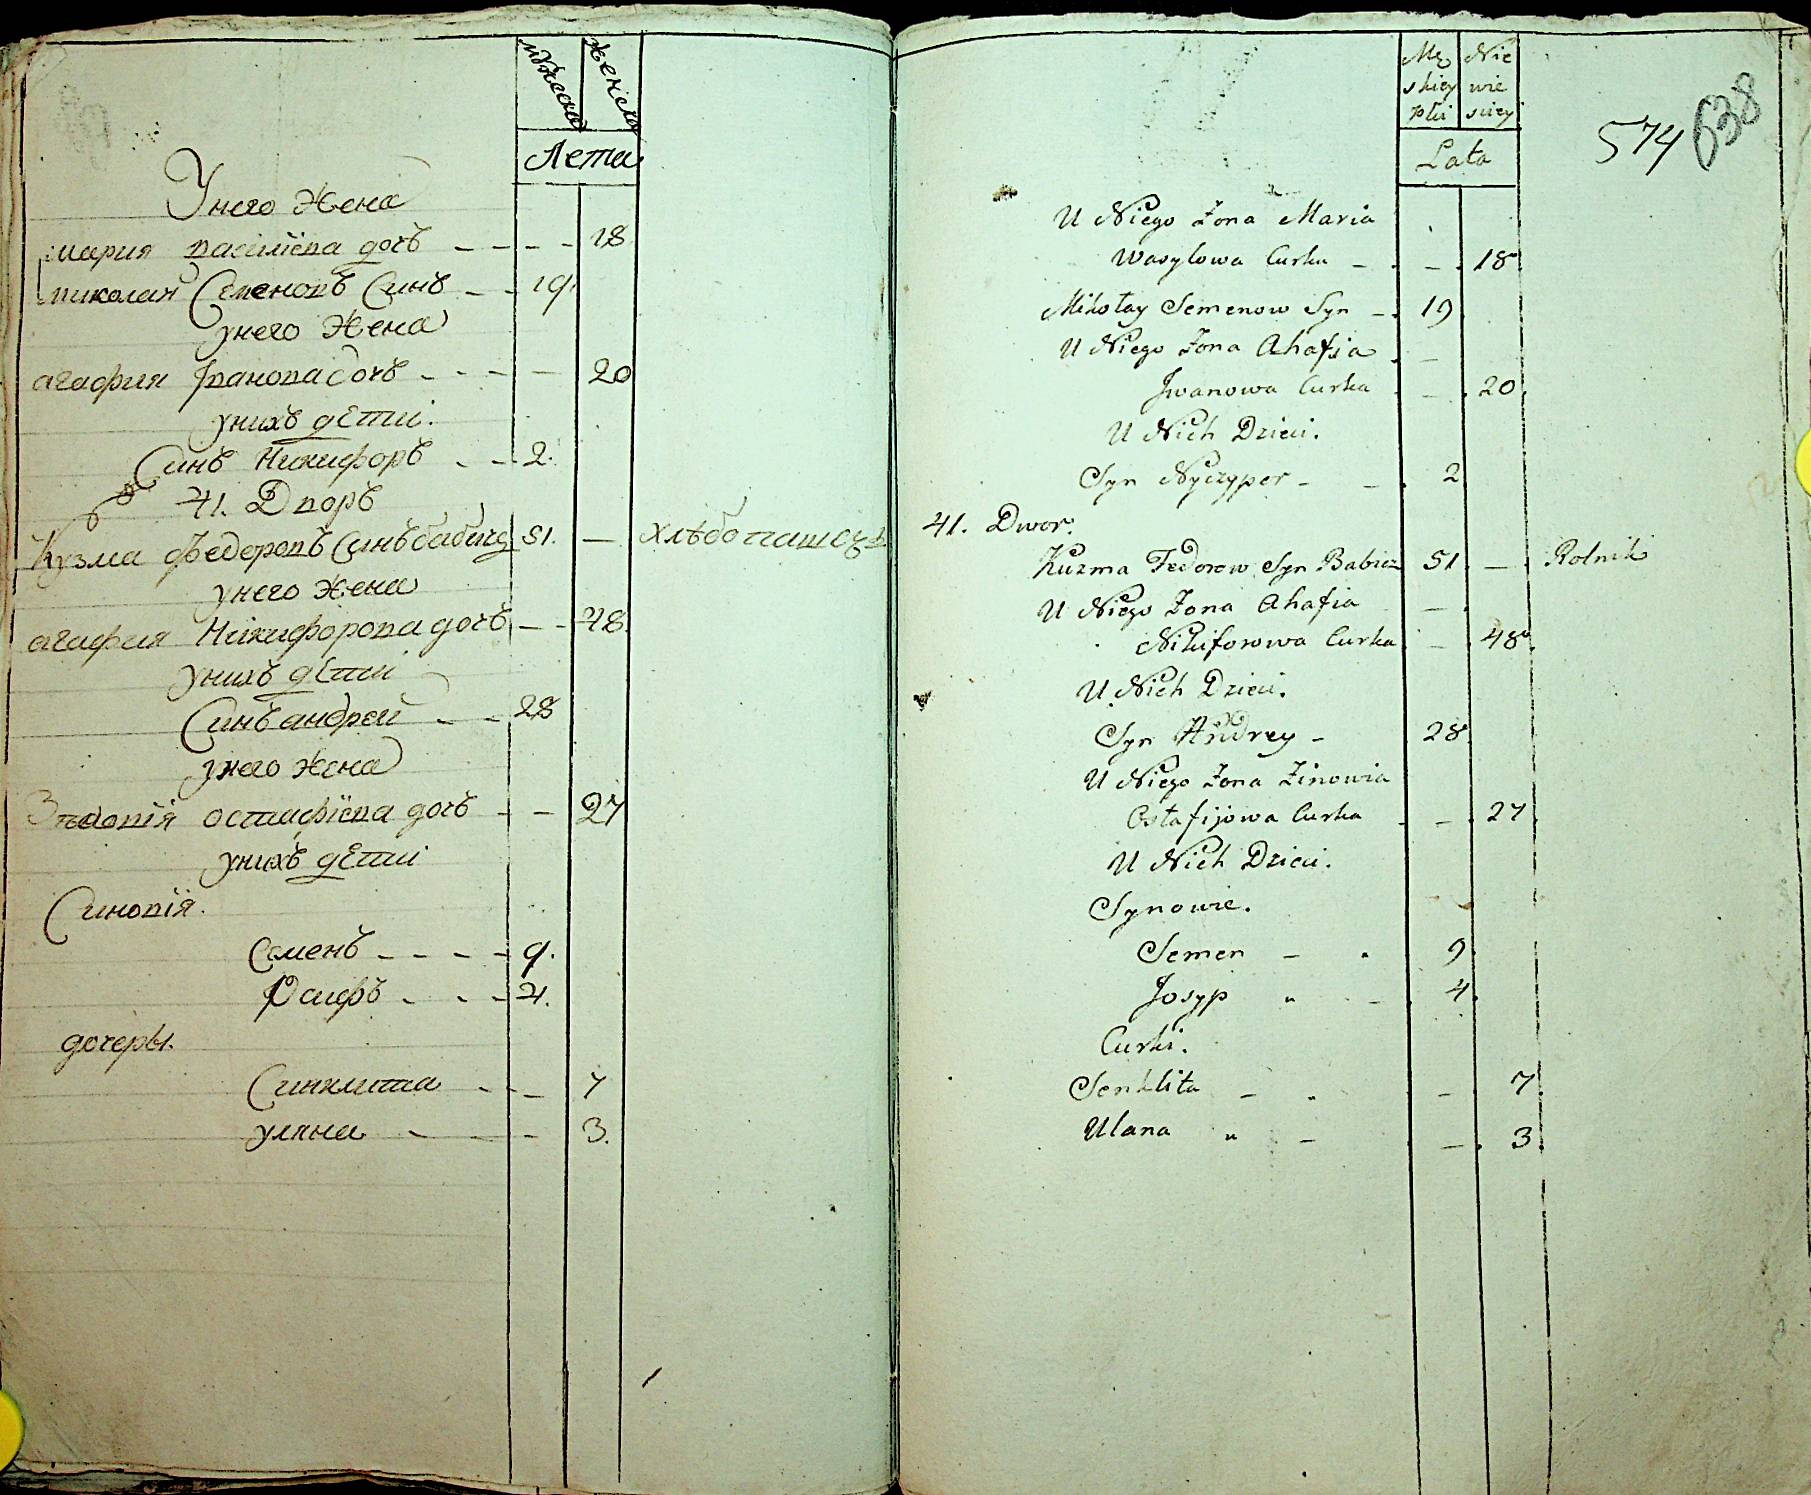 мужеска женска
Лета
У него жена
мария василїева дочь – – – – 18
николай Семеновъ Синъ – – 19.
у него жена
агафия Iвановa дочь – – – – 20
у нихъ дети.
Синъ Никифоръ – – 2.
41. Дворъ
Кузма федоровъ Синъ бабичъ 51. — хлѣбопашецъ
у него жена
агафия Никифорова дочь – – 48.
у нихъ дети
Синъ андрей – – 28
у него жена
Зѣновїя остафїева дочь – – 27
у нихъ дети
Синовїя.
Семенъ – – – – 9.
Осифъ – – – 4.
дочеры.
Синклита – – 7
уляна – – – 3.
Mę Nie
skiey wie
płci sciey
Lata
574 638
U Niego Żona Maria
Wasylowa Curka – – 18.
Mikołay Semenow Syn – 19
U Niego Żona Ahafia –
Jwanowa Curka – 20.
U Nich Dzieci.
Syn Nyczyper – – 2
41. Dwor.
Kuzma Fedorow Syn Babicz 51 — Rolnik
U Niego Żona Ahafia –
Nikiforowa Curka – 48.
U Nich Dzieci.
Syn Andrey – 28
U Niego Żona Zinowia
Ostafijowa Curka – – 27
U Nich Dzieci.
Synowie.
Semen – . 9
Josyp „ – 4.
Curki.
Senklita – „ – 7.
Ulana „ – – 3.